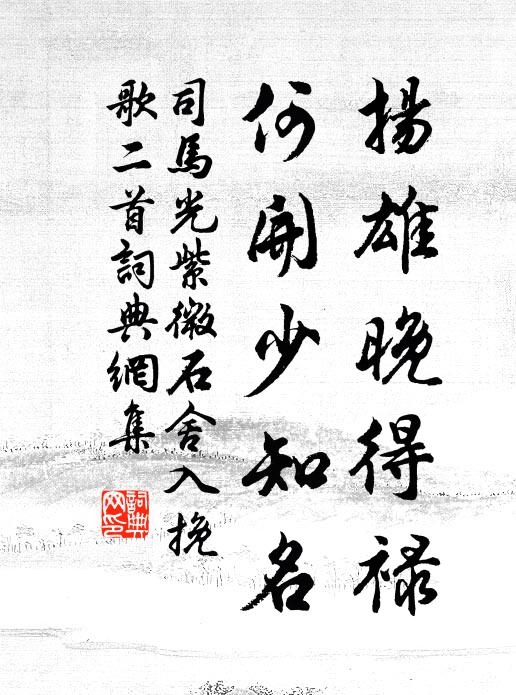 揚雄晚得祿
何開少知名
司馬光紫微石舍入挽
歌二首詞典網集
詞典
网印